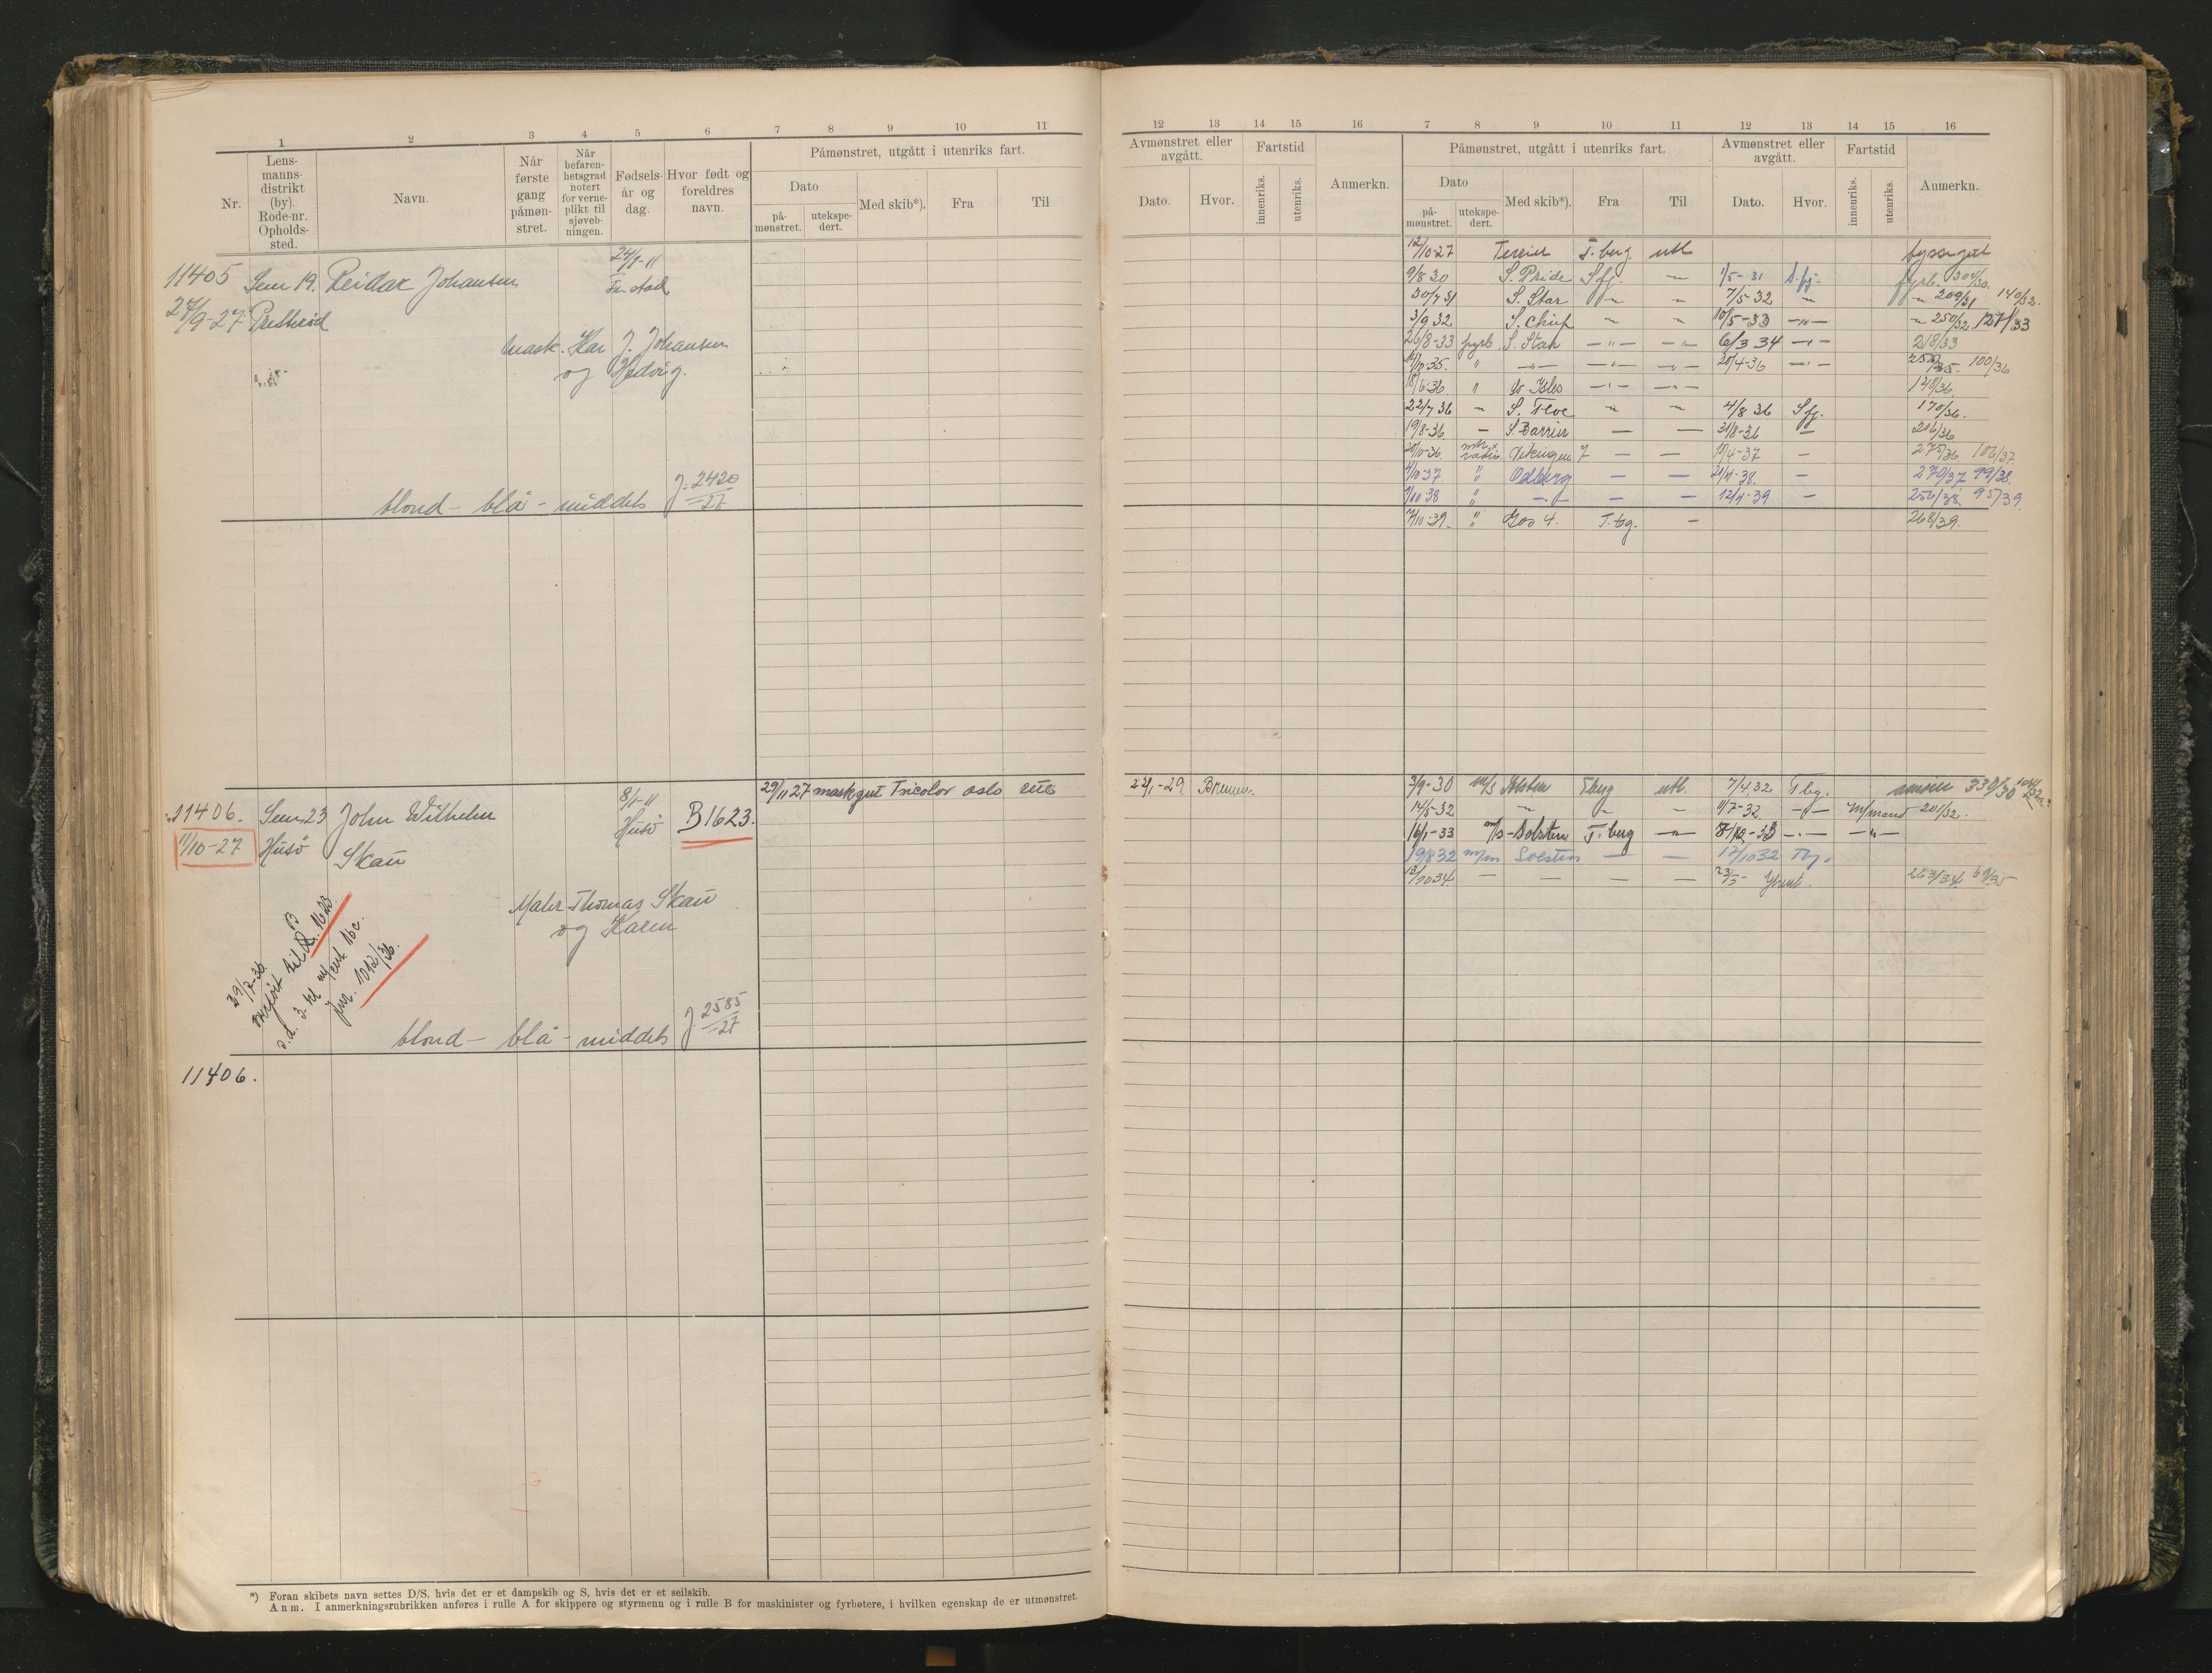 1 2 3 4 5 6 7 8 9 10 11
Nr.
Lens-
manns-
distrikt
(by).
Rode-nr.
Opholds-
sted.
Navn.
Når
første
gang
påmøn-
stret.
Når
befaren-
hetsgrad
notert
for verne-
plikt til
sjøveb-
ningen.
Fødsels-
år og
dag.
Hvor født og
foreldres
navn.
Påmønstret, utgått i utenriks fart.
Dato
på-
mønstret.
utekspe-
dert.
Med skib*).
Fra
Til
11405 Sem 19. Reidar Johansen 24/1-11
27/9-27 Presterød
Mask. Kar J. Johansen
og Hedvig.
blond - blå - middels J. 2420/-27
11406. Sem 23 John Wilhelm 8/1-11 B1623.
11/10-27 Husø Skau Husø
29/11 27 maskgut Tricolor Oslo
Maler Thomas Skau
og Karen
29/7-36
overført til B. 1623.
s.d. 3. kl
Jnr. 1012/36.
blond - blå - middels J. 2585/-27
11406.
*) Foran skibets navn settes D/S, hvis det er et dampskib og S, hvis det er et seilskib.
Anm. I anmerkningsrubrikken anføres i rulle A for skippere og styrmenn og i rulle B for maskinister og fyrbøtere, i hvilken egenskap de er utmønstret.
12 13 14 15 16 7 8 9 10 11 12 13 14 15 16
Avmønstret eller
avgått.
Dato.
Hvor.
Fartstid
innenriks.
utenriks.
Anmerkn.
Påmønstret, utgått i utenriks fart.
Dato
på-
mønstret.
utekspe-
dert.
Med skib*).
Fra
Til
Avmønstret eller
avgått.
Dato.
Hvor.
Fartstid
innenriks.
utenriks.
Anmerkn.
12/10-27 Terrier T.berg. utl byssegut
9/8 30 S. Pride Sfj. — 1/5-31 S.fj. fyrb. 304/30.
30/7 31 S. Star " " 7/5-32 " " 209/31 140/32.
3/9 32 S. Chief " " 10/5-33 -"- " 250/32. 127/33
26/8-33 fyrb S. Star -"- -"- 6/3 34 -"- 218/33
"/10-35. " -"- -"- -"- 20/4-36 -"- 100/36
18/6-36 " -"- -"- 148/36
22/7 36 " " " 4/8 36 Sfj. 170/36.
19/8-36 - S. Barrier — — 31/8-36 — 216/36
Vikingen 7 — — 4-37 — 275/36. 106/37
4/10-37. " Odberg — — 21/4-38. — 270/37 99/38.
1/10 38 " -"- — — 12/4-39 — 256/38. 95/39.
7/10-39. " Gos 4. T.bg. — 268/39.
3/9-30 m/s Solsten Tberg utl. 7/4 32 Tbg. 330/30
14/5-32 " " — 11/7-32. -"- M/mand 201/32.
16/1-33 m/s Solsten T.berg -"- 8/12-33 -"- -"-
19/8 32 Solsten — — 17/10 32 Tbg.
12/10 34 — — — — 23/5- 263/34 69/35